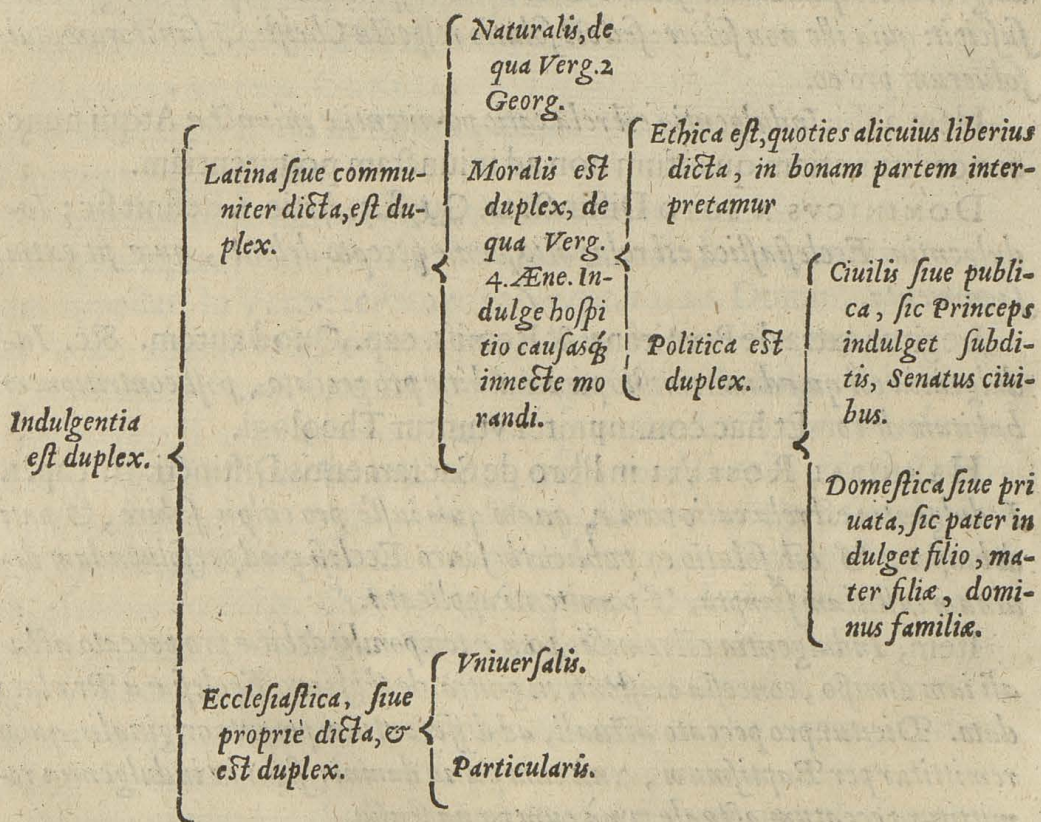 Indulgentia
est duplex.
Latina siue commu-
niter dicta, est du-
plex.
Naturalis, de
qua Verg. 2
Georg.
Moralis est
duplex, de
qua Verg.
4. Æne. In-
dulge hospi
tio causasq́;
innecte mo
randi.
Ethica est, quoties alicuius liberius
dicta, in bonam partem inter-
pretamur
Politica est
duplex.
Ciuilis siue publi-
ca, sic Princeps
indulget subdi-
tis, Senatus ciui-
bus.
Domestica siue pri
uata, sic pater in
dulget filio, ma-
ter filiæ, domi-
nus familiæ.
Ecclesiastica, siue
propriè dicta, &
est duplex.
Vniuersalis.
Particularis.